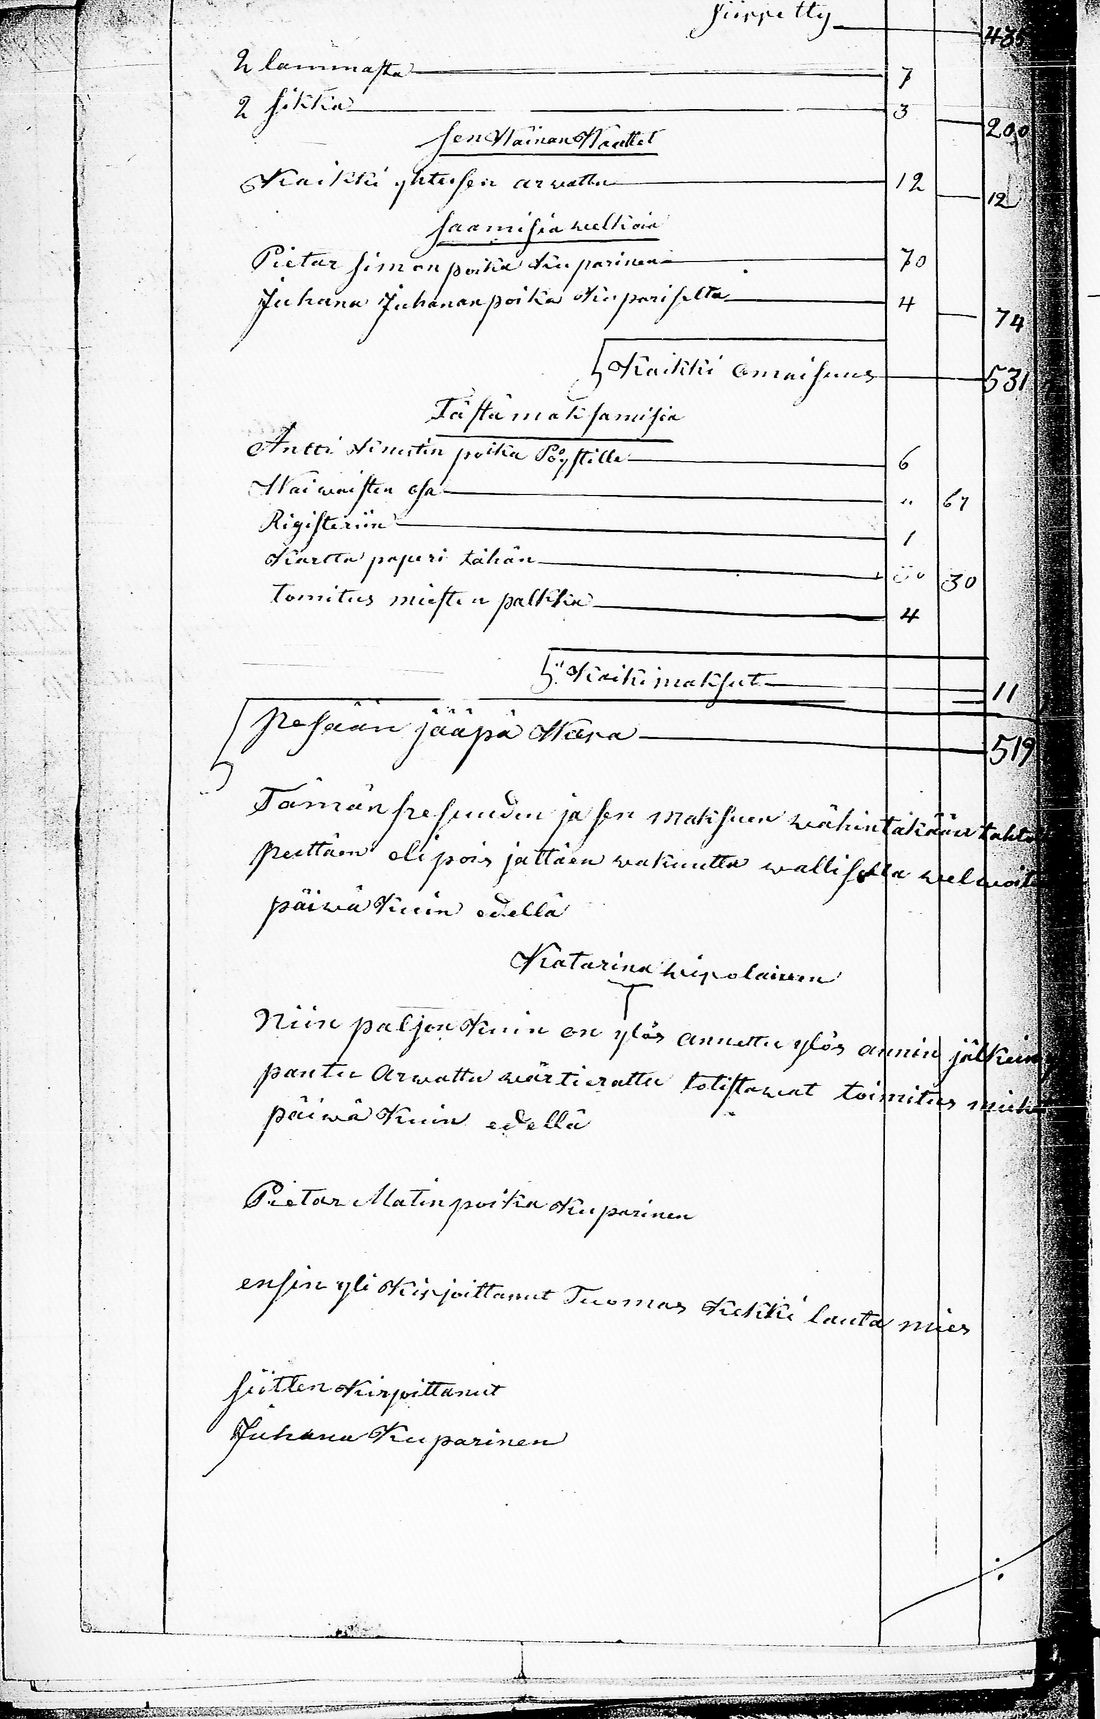 siirretty 435
2 lammasta 7
2 sikkia 3 200
sen Wainan Waattet
Kaikki yhteisen arwattu 12 12
saamisia welkoia
Pietar Simonpoika Kuparinen 70
Juhana Juhananpoika Kupariselta 4 74
Kaikki omaisuus 531
Tästä maksamisia
Antti Simutin poika Pöystille 6
Waiwaisten osa " 67
Rigisteriin 1
Kartta paperi tähän 30
toimitus miesten palkka 4
Kaiki maksut 11
pesään jääpä Wara 519
Tämän pesuuden ja sen maksuen wähintäkään tahto
peittäen eli pois jättäen wakuutta wallisella welwoit
päiwä Kuin edellä
Katarina
Niin paljon Kuin on ylös annettu ylös annin jälkein
pantu Arwattu wärtierattu totistawat toimitus mieh
päiwä Kuin edellä
Pietar Matinpoika Kuparinen
ensin yli Kirjoittanut Tuomas Kekki lauta mies
siitten Kirjoittanut
Juhana Kuparinen